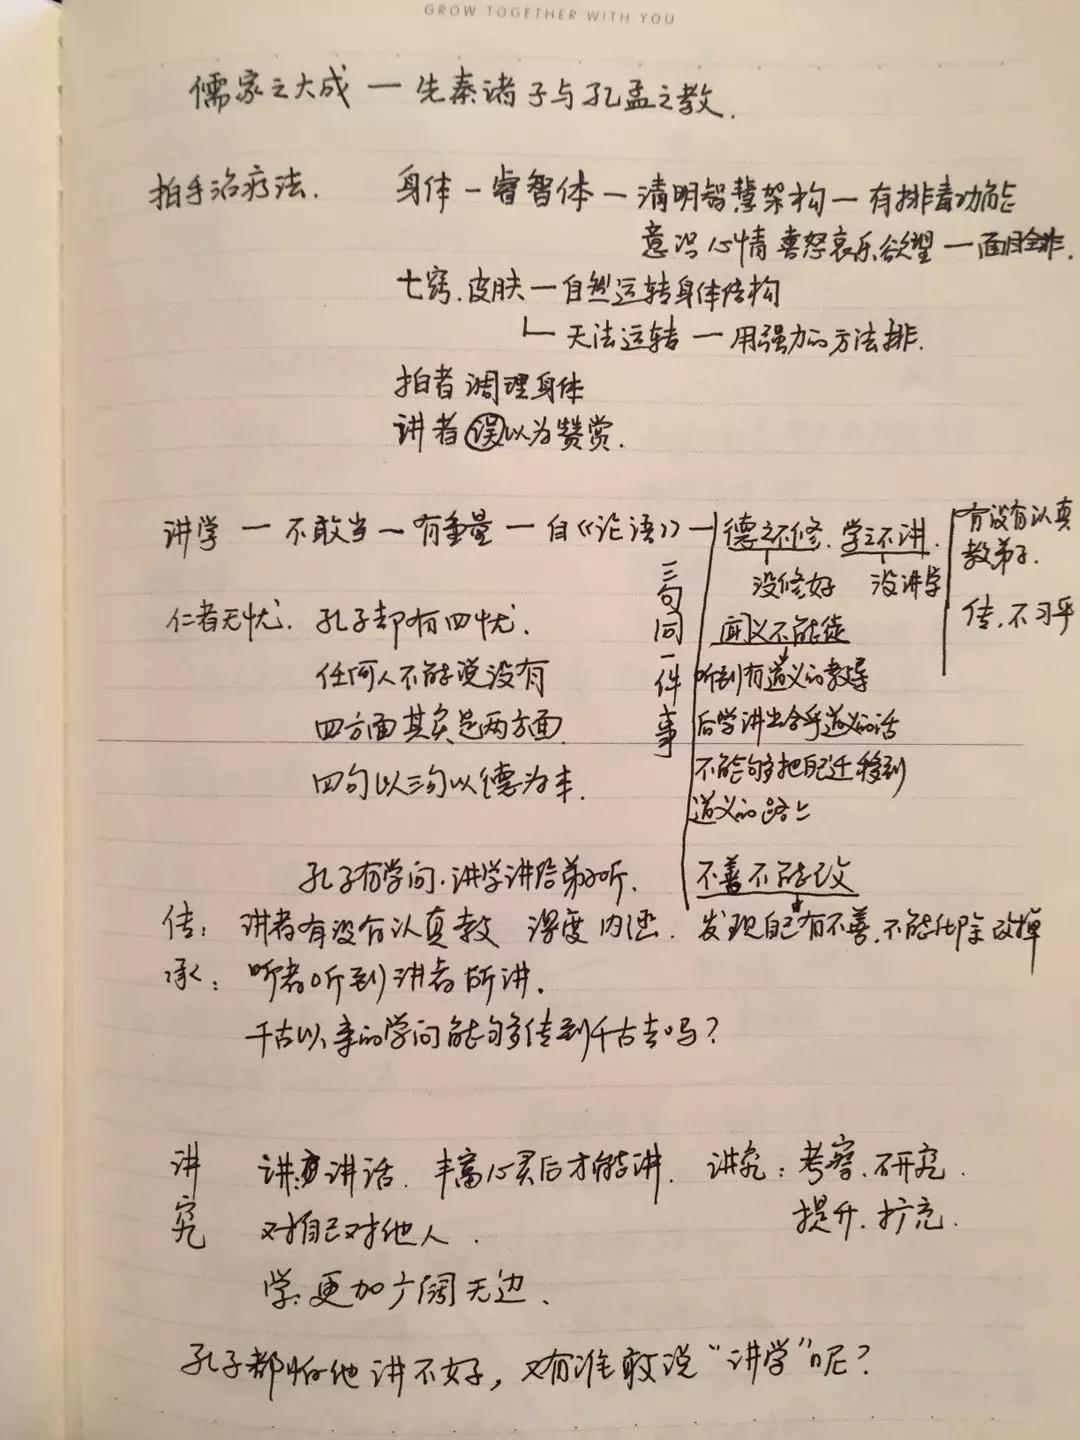 GROW TOGETHER WITH YOU
儒家之大成 — 先秦诸子与孔孟之教.
拍手治疗法. 身体 — 睿智体 — 清明智慧架构 — 有排毒功能
意识 心情 喜怒哀乐欲望 — 面目全非.
七窍.皮肤 — 自然运转身体结构
无法运转 — 用强力的方法排.
拍者 调理身体
讲者 误以为赞赏.
讲学 — 不敢当 — 有重量 — 自《论语》 — 德之不修. 学之不讲.
没修好 没讲学
有没有认真
教弟子.
传,不习乎
三句同一件事
闻义不能徙
听到有道义的教导
后学讲出合乎道义的话
不能够把自己迁移到
道义的路上
不善不能改
发现自己有不善.不能化除改掉
仁者无忧. 孔子却有四忧.
任何人不能说没有
四方面其实是两方面.
四句以三句以德为主.
孔子有学问.讲学讲给弟子听.
传: 讲者有没有认真教 深度内涵.
承: 听者听到讲者所讲.
千古以来的学问能够传到千古去吗?
讲究 讲: 讲话. 丰富心灵后才能讲. 讲究: 考察.研究.
对自己对他人. 提升.扩充.
学: 更加广阔无边.
孔子都怕他讲不好, 又有谁敢说“讲学”呢?